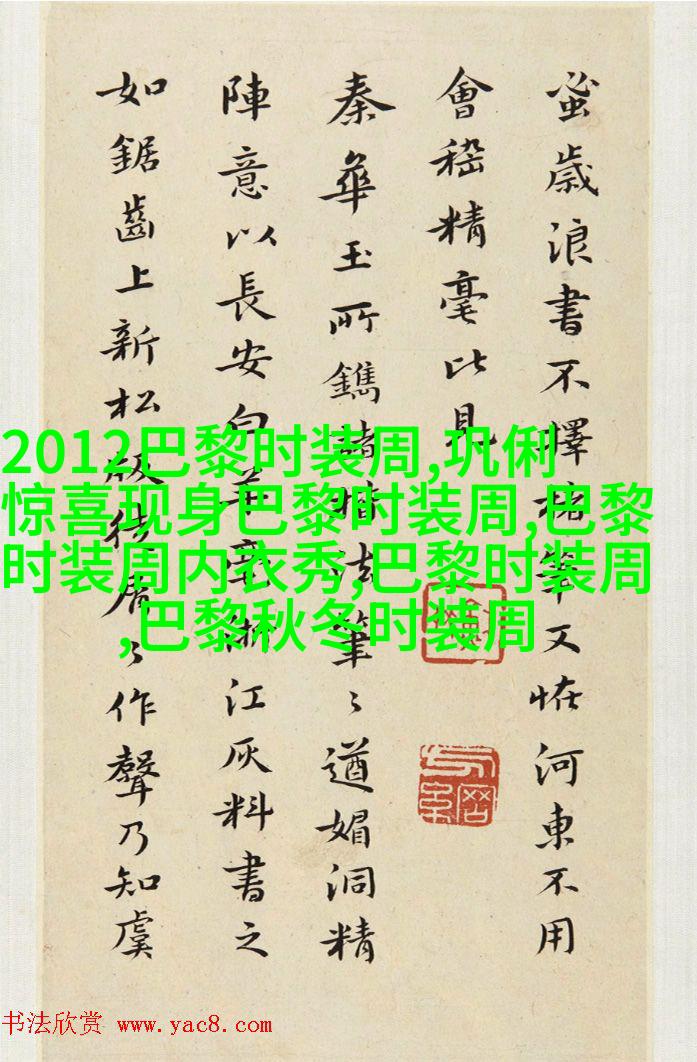 蚤歲浪書不擇格筆又怪河東不用
會稽精毫此見
秦華玉所鐫諸楷法筆〻遒媚洞精
陣意以長安白羊毫浙江灰料書之
如鋸齒上新松版徒屑〻作聲乃知虞
2012巴黎时装周,巩俐
惊喜现身巴黎时装周,巴黎
时装周内衣秀,巴黎时装周
,巴黎秋冬时装周
书法欣赏 www.yac8.com